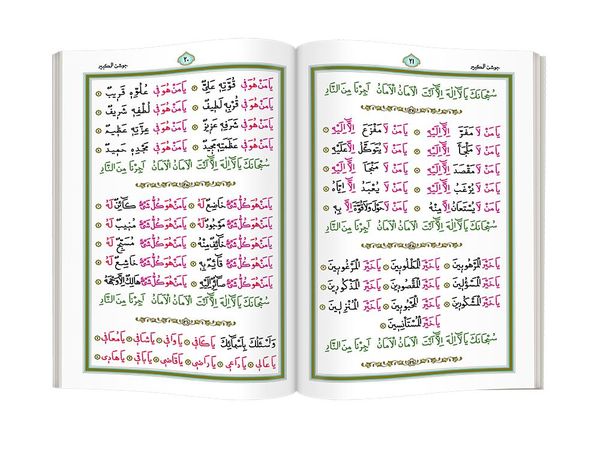 جوشن الكبير ٢٠
يَا مَنْ هُوَ فِي قُوَّتِهِ عَلِيٌّ يَا مَنْ هُوَ فِي عُلُوِّهِ قَرِيبٌ
يَا مَنْ هُوَ فِي قُرْبِهِ لَطِيفٌ يَا مَنْ هُوَ فِي لُطْفِهِ شَرِيفٌ
يَا مَنْ هُوَ فِي شَرَفِهِ عَزِيزٌ يَا مَنْ هُوَ فِي عِزَّتِهِ عَظِيمٌ
يَا مَنْ هُوَ فِي عَظَمَتِهِ مَجِيدٌ يَا مَنْ هُوَ فِي مَجْدِهِ حَمِيدٌ
سُبْحَانَكَ يَا لَا إِلٰهَ إِلَّا أَنْتَ الْأَمَانُ الْأَمَانُ أَجِرْنَا مِنَ النَّارِ
يَا مَنْ هُوَ كُلُّ شَيْءٍ خَاضِعٌ لَهُ يَا مَنْ هُوَ كُلُّ شَيْءٍ كَائِنٌ لَهُ
يَا مَنْ هُوَ كُلُّ شَيْءٍ مَوْجُودٌ لَهُ يَا مَنْ هُوَ كُلُّ شَيْءٍ مُنِيبٌ لَهُ
يَا مَنْ هُوَ كُلُّ شَيْءٍ خَائِفٌ مِنْهُ يَا مَنْ هُوَ كُلُّ شَيْءٍ مُسَبِّحٌ لَهُ
يَا مَنْ هُوَ كُلُّ شَيْءٍ قَائِمٌ بِهِ يَا مَنْ هُوَ كُلُّ شَيْءٍ خَاشِعٌ لَهُ
يَا مَنْ هُوَ كُلُّ شَيْءٍ صَائِرٌ إِلَيْهِ يَا مَنْ هُوَ كُلُّ شَيْءٍ هَالِكٌ إِلَّا وَجْهَهُ
سُبْحَانَكَ يَا لَا إِلٰهَ إِلَّا أَنْتَ الْأَمَانُ الْأَمَانُ أَجِرْنَا مِنَ النَّارِ
وَأَسْئَلُكَ بِأَسْمَائِكَ يَا كَافِي يَا وَافِي يَا شَافِي يَا مُعَافِي
يَا عَالِي يَا دَاعِي يَا رَاضِي يَا قَاضِي يَا بَاقِي يَا هَادِي
٢١ جوشن الكبير
سُبْحَانَكَ يَا لَا إِلٰهَ إِلَّا أَنْتَ الْأَمَانُ الْأَمَانُ أَجِرْنَا مِنَ النَّارِ
يَا مَنْ لَا مَفَرَّ إِلَّا إِلَيْهِ يَا مَنْ لَا مَفْزَعَ إِلَّا إِلَيْهِ
يَا مَنْ لَا مَلْجَأَ إِلَّا إِلَيْهِ يَا مَنْ لَا يُتَوَكَّلُ إِلَّا عَلَيْهِ
يَا مَنْ لَا مَقْصَدَ إِلَّا إِلَيْهِ يَا مَنْ لَا مَنْجَأَ إِلَّا إِلَيْهِ
يَا مَنْ لَا يُرْغَبُ إِلَّا إِلَيْهِ يَا مَنْ لَا يُعْبَدُ إِلَّا إِيَّاهُ
يَا مَنْ لَا يُسْتَعَانُ إِلَّا مِنْهُ يَا مَنْ لَا حَوْلَ وَلَا قُوَّةَ إِلَّا بِهِ
سُبْحَانَكَ يَا لَا إِلٰهَ إِلَّا أَنْتَ الْأَمَانُ الْأَمَانُ أَجِرْنَا مِنَ النَّارِ
يَا خَيْرَ الْمَرْهُوبِينَ يَا خَيْرَ الْمَطْلُوبِينَ يَا خَيْرَ الْمَرْغُوبِينَ
يَا خَيْرَ الْمَسْؤُلِينَ يَا خَيْرَ الْمَقْصُودِينَ يَا خَيْرَ الْمَذْكُورِينَ
يَا خَيْرَ الْمَشْكُورِينَ يَا خَيْرَ الْمَحْبُوبِينَ يَا خَيْرَ الْمُنْزِلِينَ
يَا خَيْرَ الْمُسْتَأْنِسِينَ
سُبْحَانَكَ يَا لَا إِلٰهَ إِلَّا أَنْتَ الْأَمَانُ الْأَمَانُ أَجِرْنَا مِنَ النَّارِ